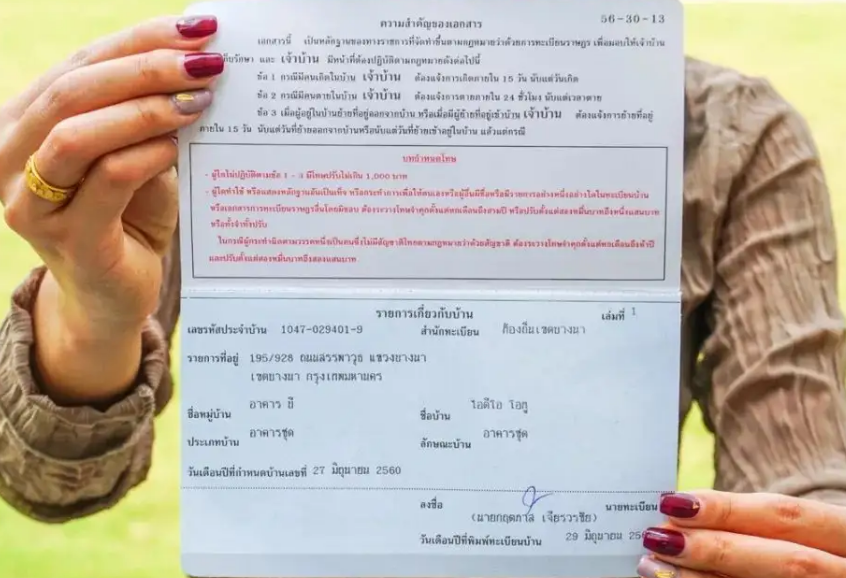 56-30-13
ความสำคัญของเอกสาร
เอกสารนี้ เป็นหลักฐานของทางราชการที่จัดทำขึ้นตามกฎหมายว่าด้วยการทะเบียนราษฎร เพื่อมอบให้เจ้าบ้าน
เก็บรักษา และ เจ้าบ้าน มีหน้าที่ต้องปฏิบัติตามกฎหมายดังต่อไปนี้
ข้อ 1 กรณีมีคนเกิดในบ้าน เจ้าบ้าน ต้องแจ้งการเกิดภายใน 15 วัน นับแต่วันเกิด
ข้อ 2 กรณีมีคนตายในบ้าน เจ้าบ้าน ต้องแจ้งการตายภายใน 24 ชั่วโมง นับแต่เวลาตาย
ข้อ 3 เมื่อผู้อยู่ในบ้านย้ายที่อยู่ออกจากบ้าน หรือเมื่อมีผู้ย้ายที่อยู่เข้าบ้าน เจ้าบ้าน ต้องแจ้งการย้ายที่อยู่
ภายใน 15 วัน นับแต่วันที่ย้ายออกจากบ้านหรือนับแต่วันที่ย้ายเข้าอยู่ในบ้าน แล้วแต่กรณี
บทกำหนดโทษ
- ผู้ใดไม่ปฏิบัติตามข้อ 1 - 3 มีโทษปรับไม่เกิน 1,000 บาท
- ผู้ใดทำ ใช้ หรือแสดงหลักฐานอันเป็นเท็จ หรือกระทำการเพื่อให้ตนเองหรือผู้อื่นมีชื่อหรือมีรายการอย่างหนึ่งอย่างใดในทะเบียนบ้าน
หรือเอกสารการทะเบียนราษฎรอื่นโดยมิชอบ ต้องระวางโทษจำคุกตั้งแต่หกเดือนถึงสามปี หรือปรับตั้งแต่สองหมื่นบาทถึงหนึ่งแสนบาท
หรือทั้งจำทั้งปรับ
ในกรณีผู้กระทำผิดตามวรรคหนึ่งเป็นคนซึ่งไม่มีสัญชาติไทยตามกฎหมายว่าด้วยสัญชาติ ต้องระวางโทษจำคุกตั้งแต่หกเดือนถึงห้าปี
และปรับตั้งแต่สองหมื่นบาทถึงสองแสนบาท
รายการเกี่ยวกับบ้าน เล่มที่ 1
เลขรหัสประจำบ้าน 1047-029401-9 สำนักทะเบียน ท้องถิ่นเขตบางนา
รายการที่อยู่ 195/928 ถนนสรรพาวุธ แขวงบางนา
เขตบางนา กรุงเทพมหานคร
ชื่อหมู่บ้าน อาคาร บี ชื่อบ้าน ไอดีโอ โอทู
ประเภทบ้าน อาคารชุด ลักษณะบ้าน อาคารชุด
วันเดือนปีที่กำหนดบ้านเลขที่ 27 มิถุนายน 2560
ลงชื่อ นายทะเบียน
(นายกฤตภาส เจียรวรชัย)
วันเดือนปีที่พิมพ์ทะเบียนบ้าน 29 มิถุนายน